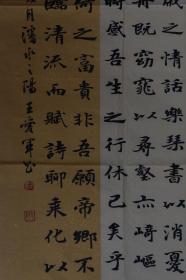 戚之情話樂琴書以消憂
舟既窈窕以尋壑亦崎嶇
時感吾生之行休已矣乎
何之富貴非吾願帝鄉不
臨清流而賦詩聊乘化以
月瀋水之陽王愛軍書